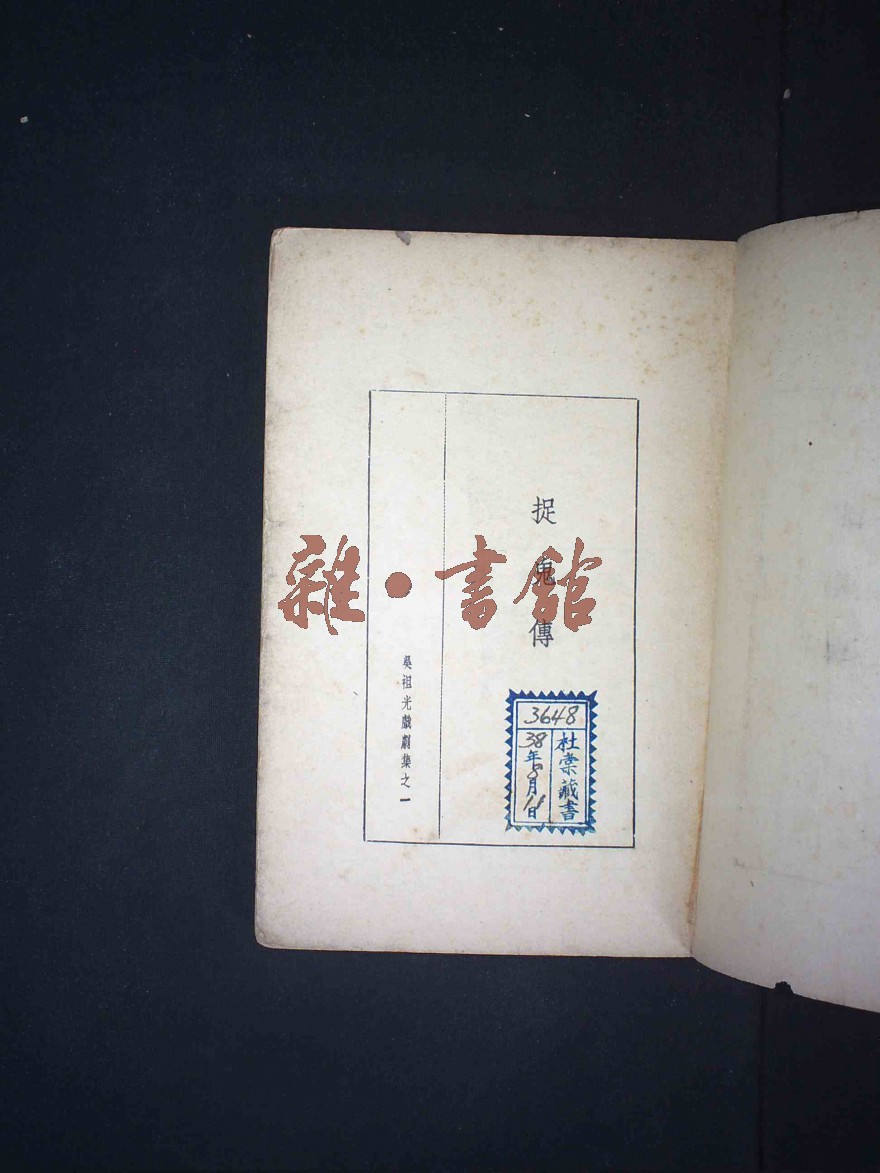 捉鬼傳
吳祖光戲劇集之一
雜·書館
3648
杜棠藏書
38年8月11日